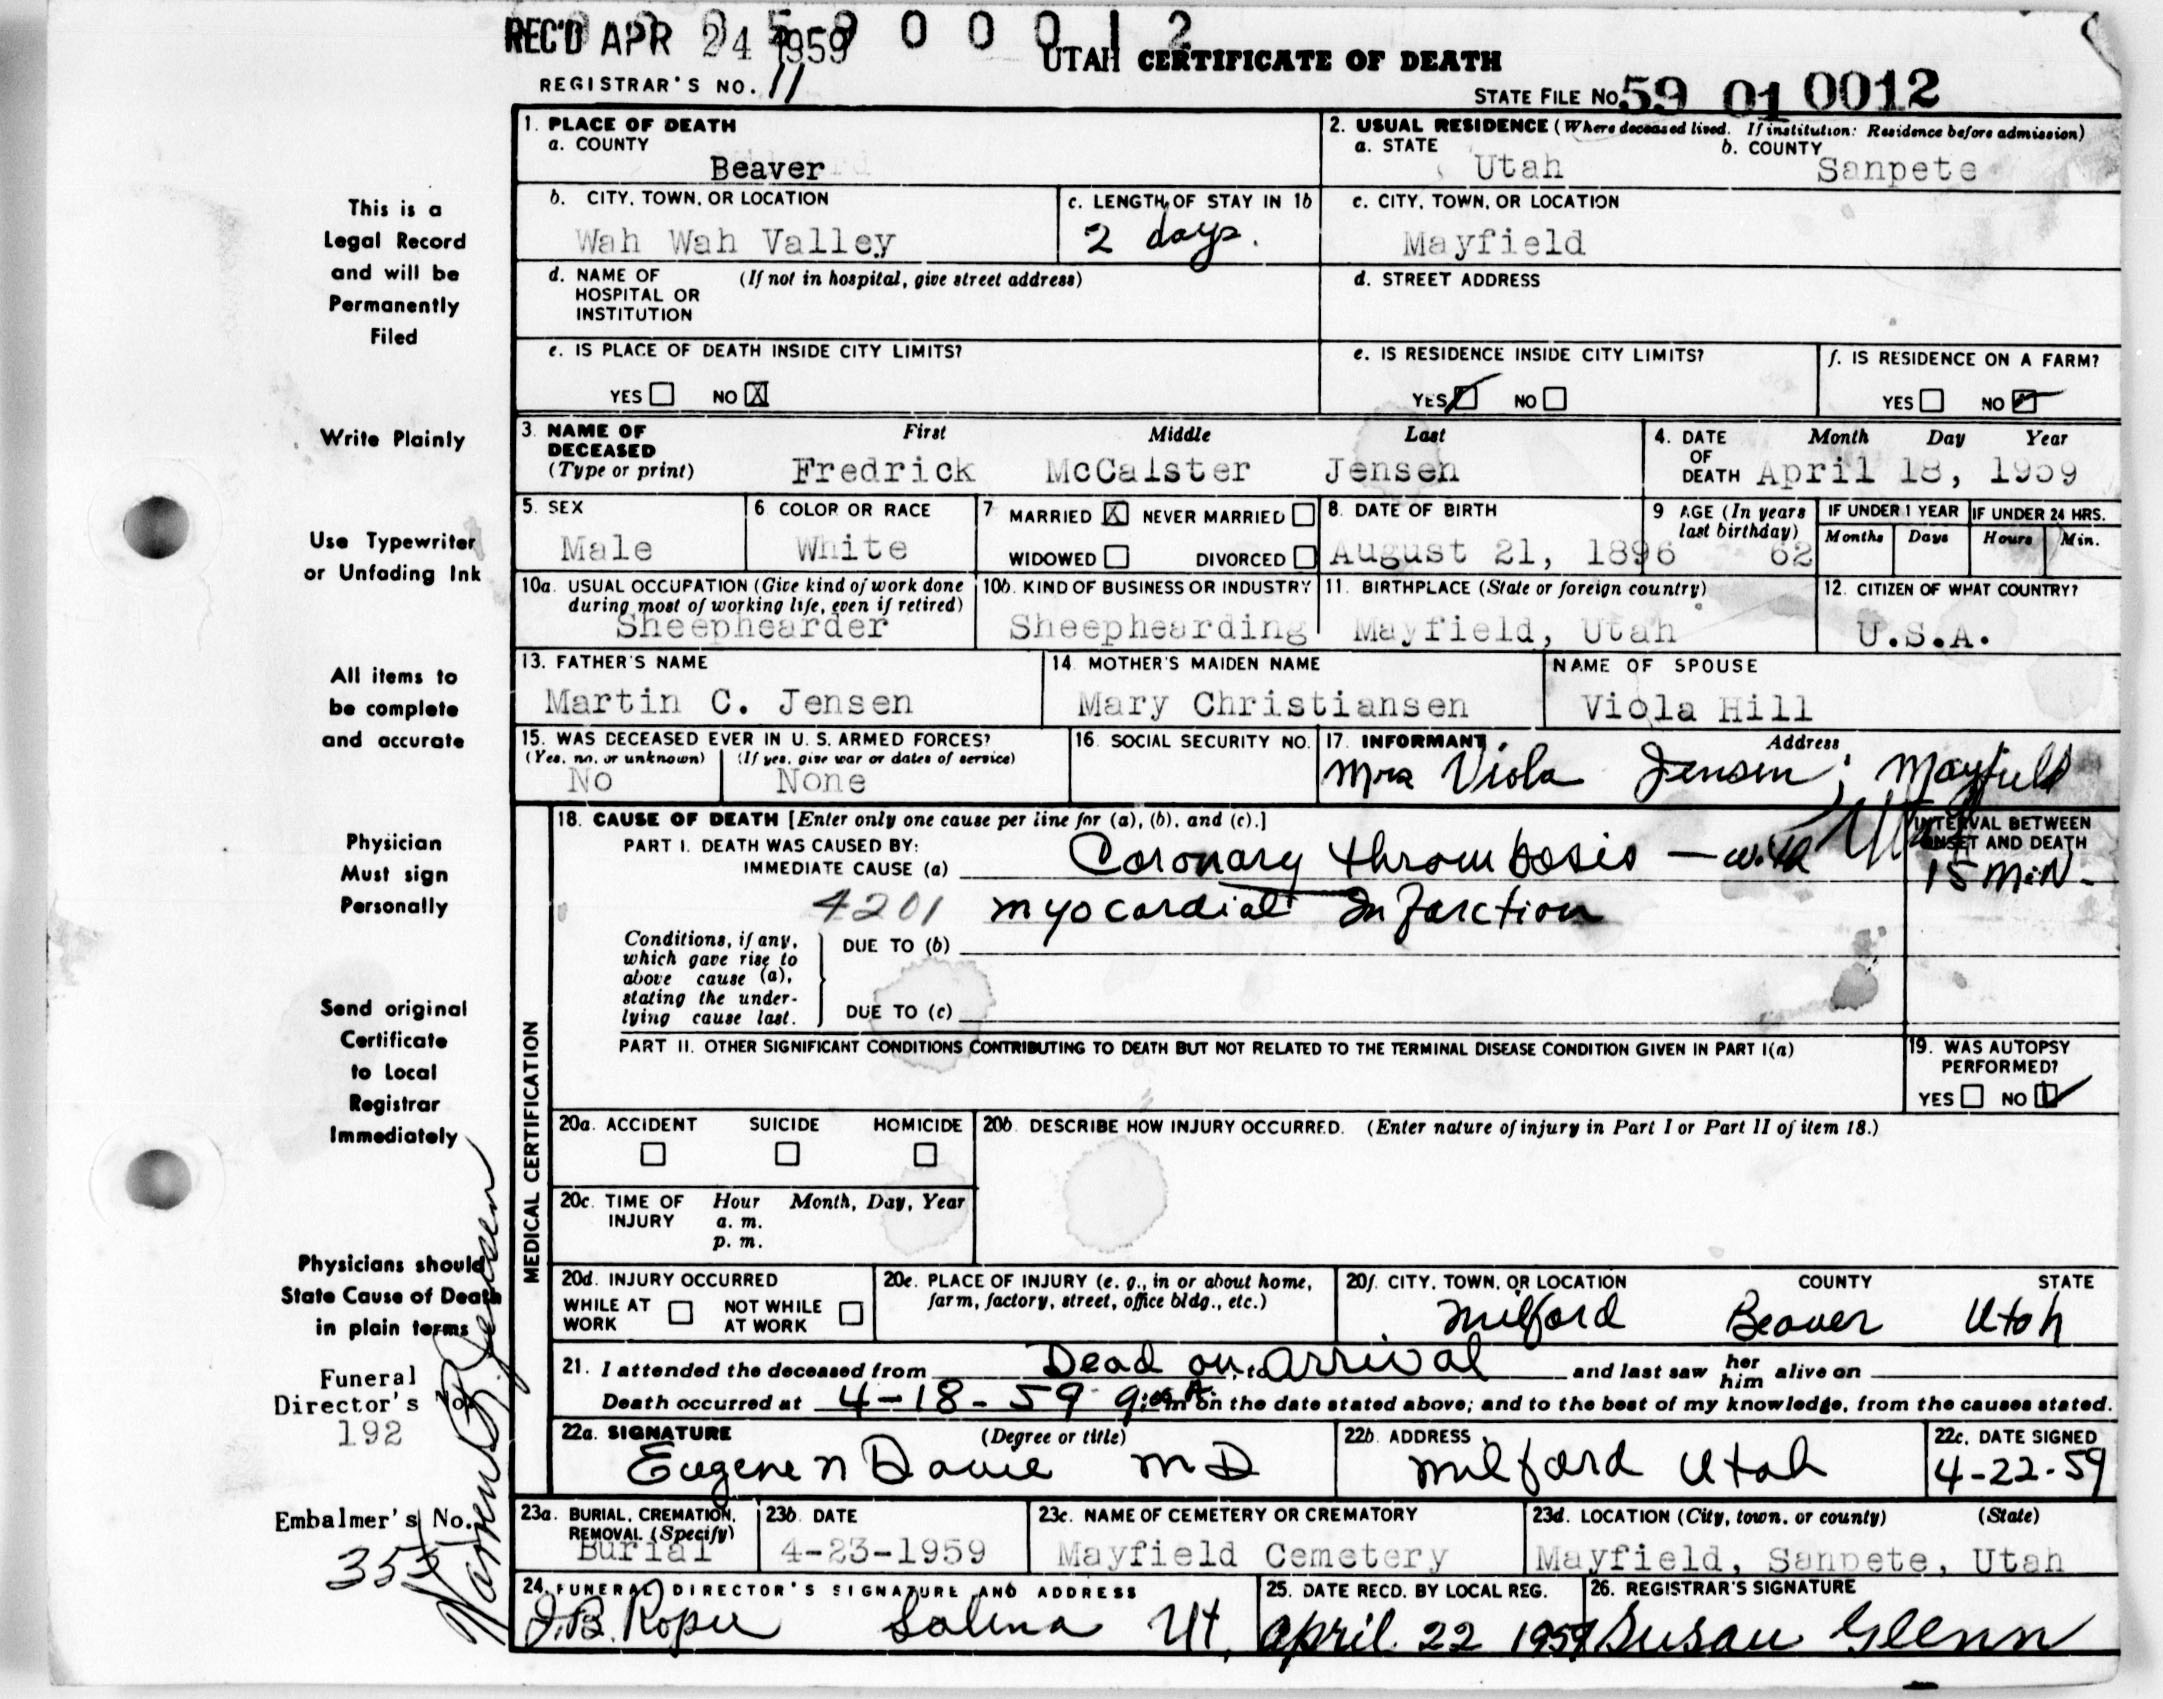 REC'D APR 24 1959 0 0 0 1 2
UTAH CERTIFICATE OF DEATH
REGISTRAR'S NO. 11
STATE FILE NO. 59 01 0012
This is a
Legal Record
and will be
Permanently
Filed
Write Plainly
Use Typewriter
or Unfading Ink
All items to
be complete
and accurate
Physician
Must sign
Personally
Send original
Certificate
to Local
Registrar
Immediately
Physicians should
State Cause of Death
in plain terms
Funeral
Director's No.
192
Embalmer's No.
1. PLACE OF DEATH
a. COUNTY
Beaver
2. USUAL RESIDENCE (Where deceased lived. If institution: Residence before admission)
a. STATE b. COUNTY
Utah Sanpete
b. CITY, TOWN, OR LOCATION
Wah Wah Valley
c. LENGTH OF STAY IN 1b
2 days.
c. CITY, TOWN, OR LOCATION
Mayfield
d. NAME OF (If not in hospital, give street address)
HOSPITAL OR
INSTITUTION
d. STREET ADDRESS
e. IS PLACE OF DEATH INSIDE CITY LIMITS?
YES NO X
e. IS RESIDENCE INSIDE CITY LIMITS?
YES NO
f. IS RESIDENCE ON A FARM?
YES NO
3. NAME OF First Middle Last
DECEASED
(Type or print) Fredrick McCalster Jensen
4. DATE Month Day Year
OF
DEATH April 18, 1959
5. SEX
Male
6 COLOR OR RACE
White
7 MARRIED X NEVER MARRIED
WIDOWED DIVORCED
8. DATE OF BIRTH
August 21, 1896
9 AGE (In years
last birthday)
62
IF UNDER 1 YEAR IF UNDER 24 HRS.
Months Days Hours Min.
10a. USUAL OCCUPATION (Give kind of work done
during most of working life, even if retired)
Sheephearder
10b. KIND OF BUSINESS OR INDUSTRY
Sheephearding
11. BIRTHPLACE (State or foreign country)
Mayfield, Utah
12. CITIZEN OF WHAT COUNTRY?
U.S.A.
13. FATHER'S NAME
Martin C. Jensen
14. MOTHER'S MAIDEN NAME
Mary Christiansen
NAME OF SPOUSE
Viola Hill
15. WAS DECEASED EVER IN U. S. ARMED FORCES?
(Yes, no, or unknown) (If yes, give war or dates of service)
No None
16. SOCIAL SECURITY NO.
17. INFORMANT Address
Mrs Viola Jensen; Mayfield
Utah
MEDICAL CERTIFICATION
18. CAUSE OF DEATH [Enter only one cause per line for (a), (b), and (c).]
INTERVAL BETWEEN
ONSET AND DEATH
PART I. DEATH WAS CAUSED BY:
IMMEDIATE CAUSE (a) Coronary thrombosis — with 15 MiN-
4201 myocardial Infarction
Conditions, if any,
which gave rise to
above cause (a),
stating the under-
lying cause last.
DUE TO (b)
DUE TO (c)
PART II. OTHER SIGNIFICANT CONDITIONS CONTRIBUTING TO DEATH BUT NOT RELATED TO THE TERMINAL DISEASE CONDITION GIVEN IN PART I(a)
19. WAS AUTOPSY
PERFORMED?
YES NO
20a. ACCIDENT SUICIDE HOMICIDE
20b. DESCRIBE HOW INJURY OCCURRED. (Enter nature of injury in Part I or Part II of item 18.)
20c. TIME OF Hour Month, Day, Year
INJURY a. m.
p. m.
20d. INJURY OCCURRED
WHILE AT WORK NOT WHILE AT WORK
20e. PLACE OF INJURY (e. g., in or about home,
farm, factory, street, office bldg., etc.)
20f. CITY, TOWN, OR LOCATION COUNTY STATE
Milford Beaver Utah
21. I attended the deceased from Dead on to Arrival and last saw her him alive on
Death occurred at 4-18-59 m on the date stated above; and to the best of my knowledge, from the causes stated.
22a. SIGNATURE (Degree or title)
Eugene N Davie MD
22b. ADDRESS
Milford Utah
22c. DATE SIGNED
4-22-59
23a. BURIAL, CREMATION,
REMOVAL (Specify)
Burial
23b. DATE
4-23-1959
23c. NAME OF CEMETERY OR CREMATORY
Mayfield Cemetery
23d. LOCATION (City, town, or county) (State)
Mayfield, Sanpete, Utah
24. FUNERAL DIRECTOR'S SIGNATURE AND ADDRESS
J.B. Roper Salina Ut,
25. DATE RECD. BY LOCAL REG.
April 22 1959
26. REGISTRAR'S SIGNATURE
Susan Glenn